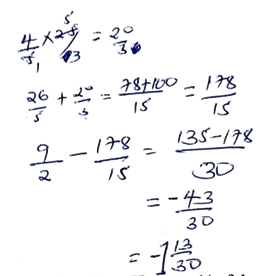 4/5 × 25/3 = 20/3
26/5 + 20/3 = 78+100/15 = 178/15
9/2 - 178/15 = 135-178/30
= -43/30
= -1 13/30